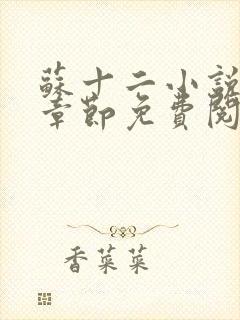 蘇十二小說
章節免費閱
香菜菜